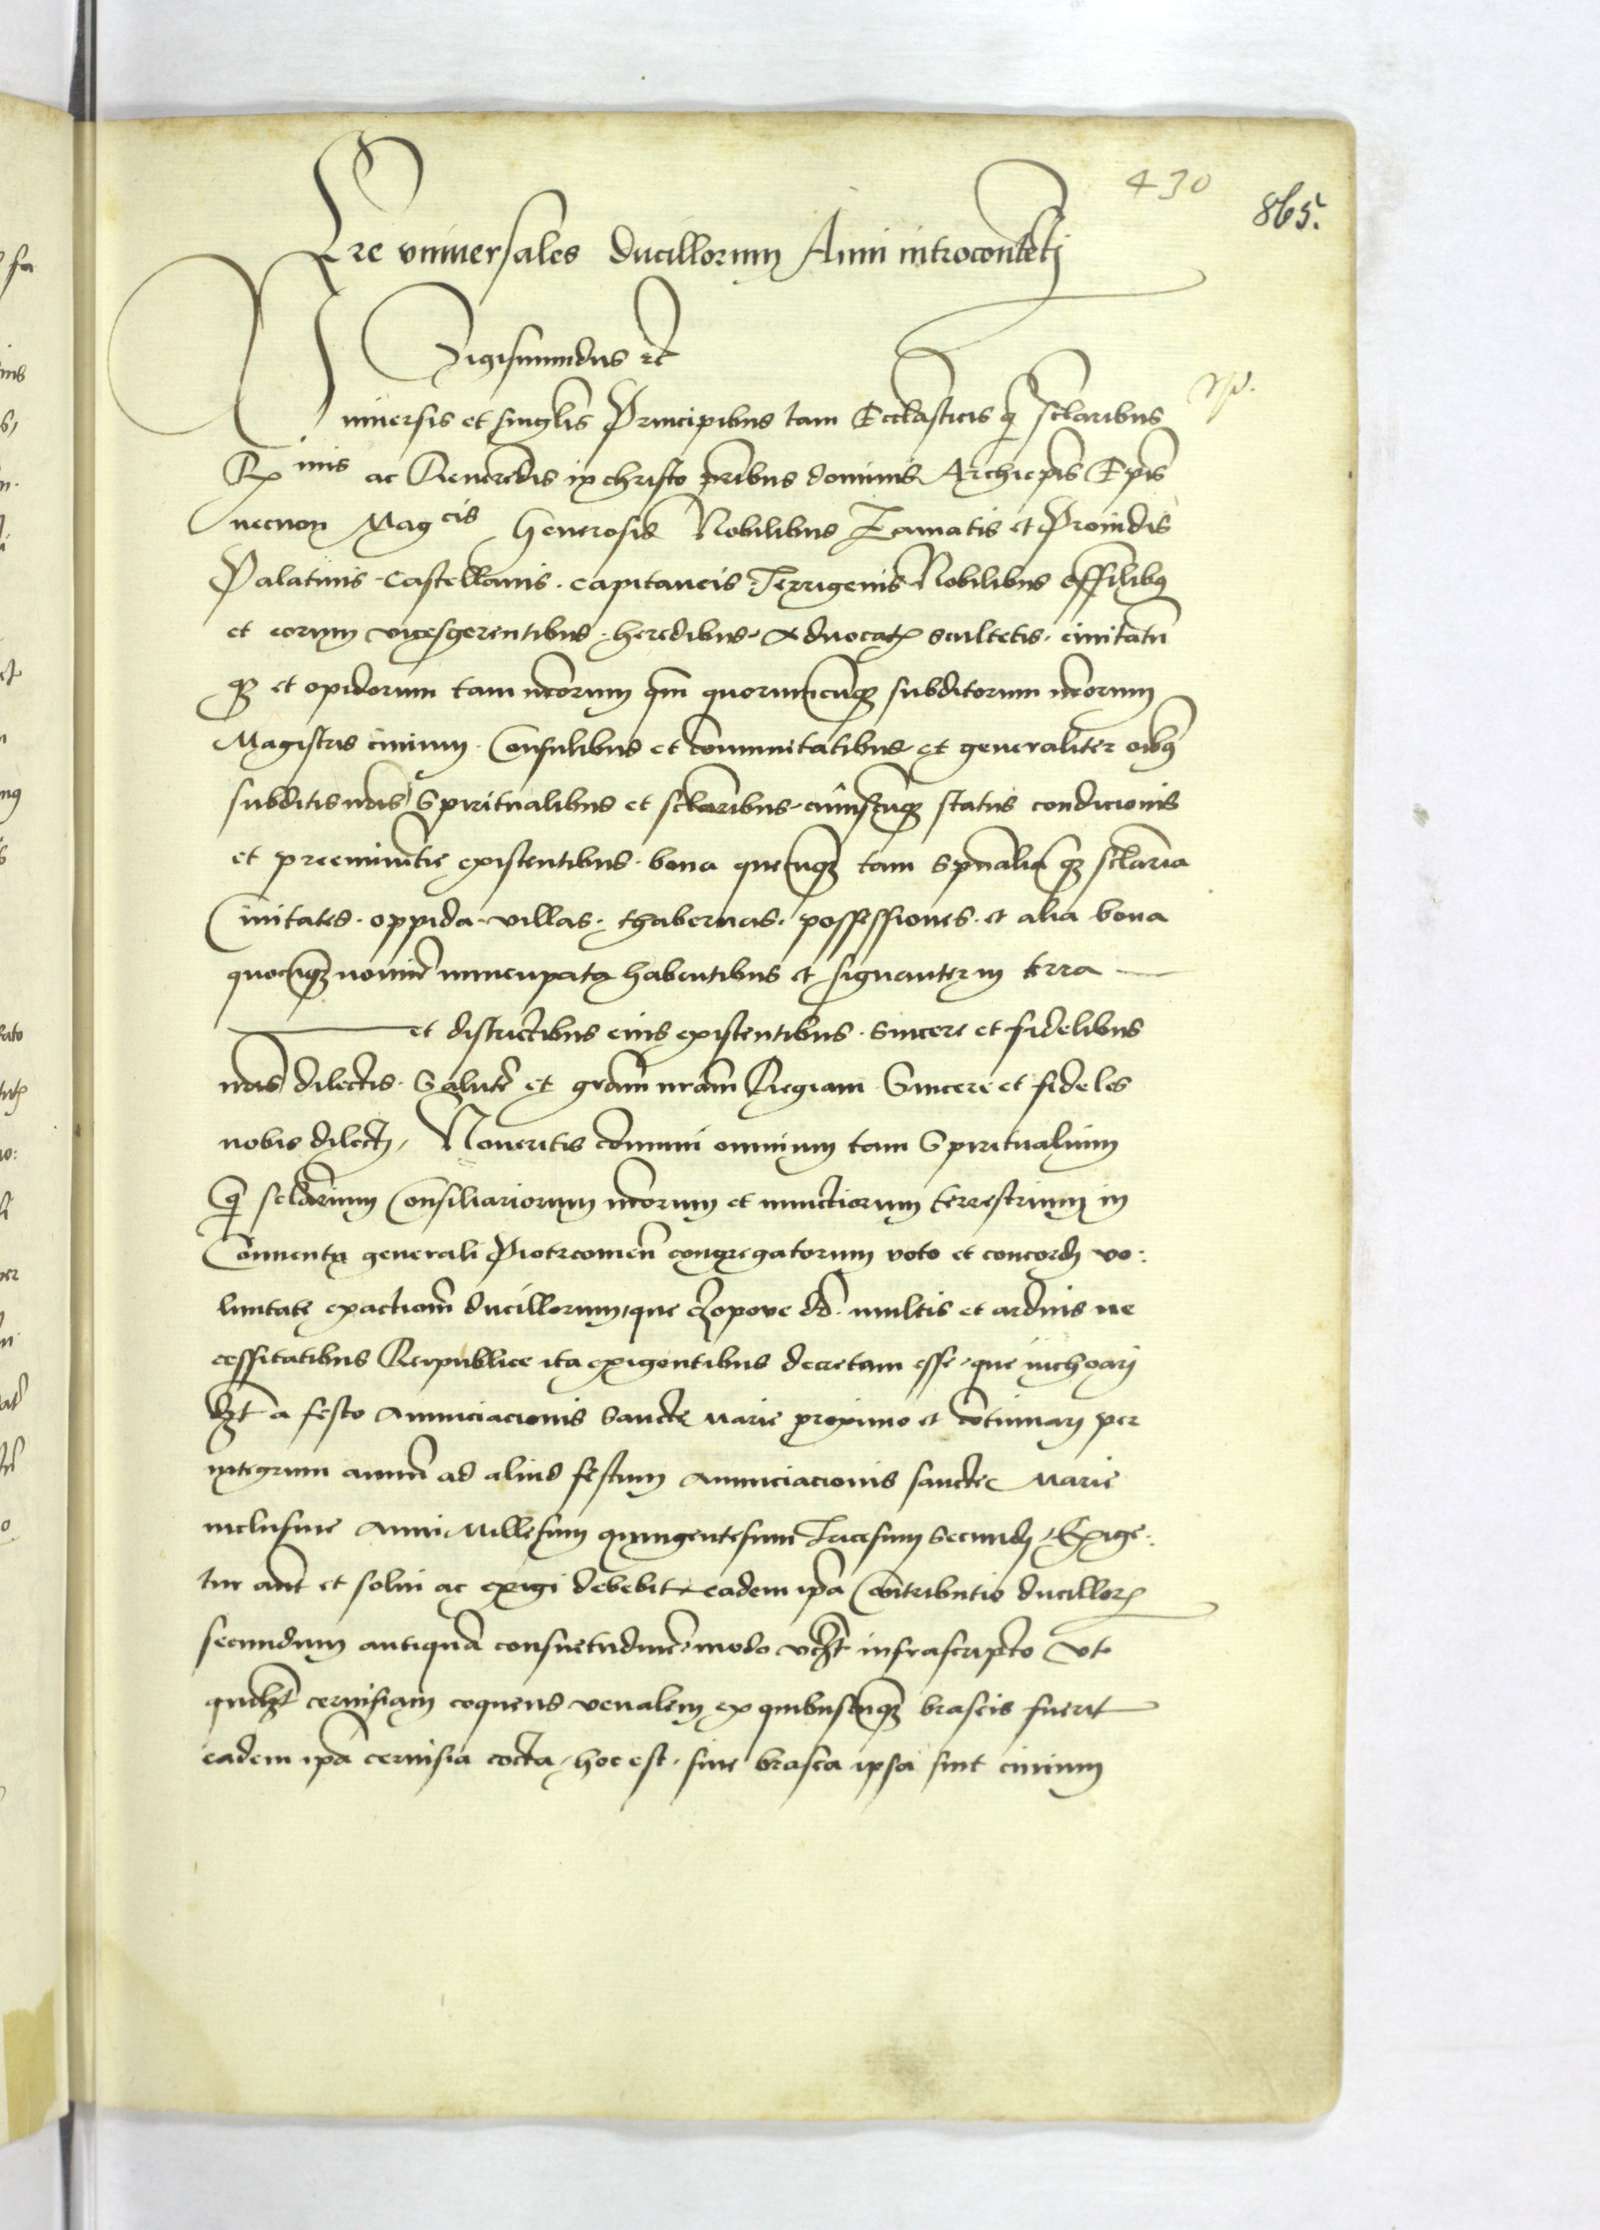 430
865.
Lre vniuersales ducillorum Anni introcontetj
Sigismundus etc
Vniuersis et singlis Principibus tam Ecclasticis q sclaribus
Rmis ac Reueredis in christo pribus dominis Archiepis Epis
necnon Magcis Generosis Nobilibus Famatis et Prouidis
Palatinis. Castellanis. capitaneis. Terrigenis Nobilibus offilibus
et eorum vicesgerentibus. heredibus. Aduocatis scultetis. ciuitatu
q et opidorum tam nrorum qm quorumcunq subditorum nrorum
Magistris ciuium. Consulibus et communitatibus et generaliter oibus
subditis nris Spiritualibus et sclaribus. cuiuscunq status condicionis
et preeminentie existentibus. bona quecunq tam spualia q sclaria
Ciuitates. oppida. villas. thabernas. possessiones. et alia bona
quocunq nomine nuncupata habentibus et signanter in terra
et districtibus eius existentibus. Sincere et fidelibus
nris dilectis. Salute et gram nram Regiam. Sincere et fideles
nobis dilecti, Noueritis communi omnium tam Spiritualium
q sclarium Consiliariorum nrorum et nunctiorum terrestrium in
Conuentu generali Piotrcouien congregatorum voto et concordi vo:
luntate exactiom ducillorum, que czopoue dd. multis et arduis ne
cessitatibus Reipublice ita exigentibus decretam esse, que inchoari
dzt a festo Anunciacionis Sancte Marie proximo et cotinuari per
integrum annu ad aliud festum Anunciacionis sancte Marie
inclusiue Anni Millesimi quingentesimi Tricesimi secundi, Exige:
tur aut et solui ac exigi debebit eadem ipa Contributio ducillor
secundum antiqua consuetudine, modo vczt infrascripto Vt
quilzt ceruisiam coquens venalem ex quibuscunq braseis fuerit
eadem ipa ceruisia cocta, hoc est, siue brasea ipsa sint ciuium